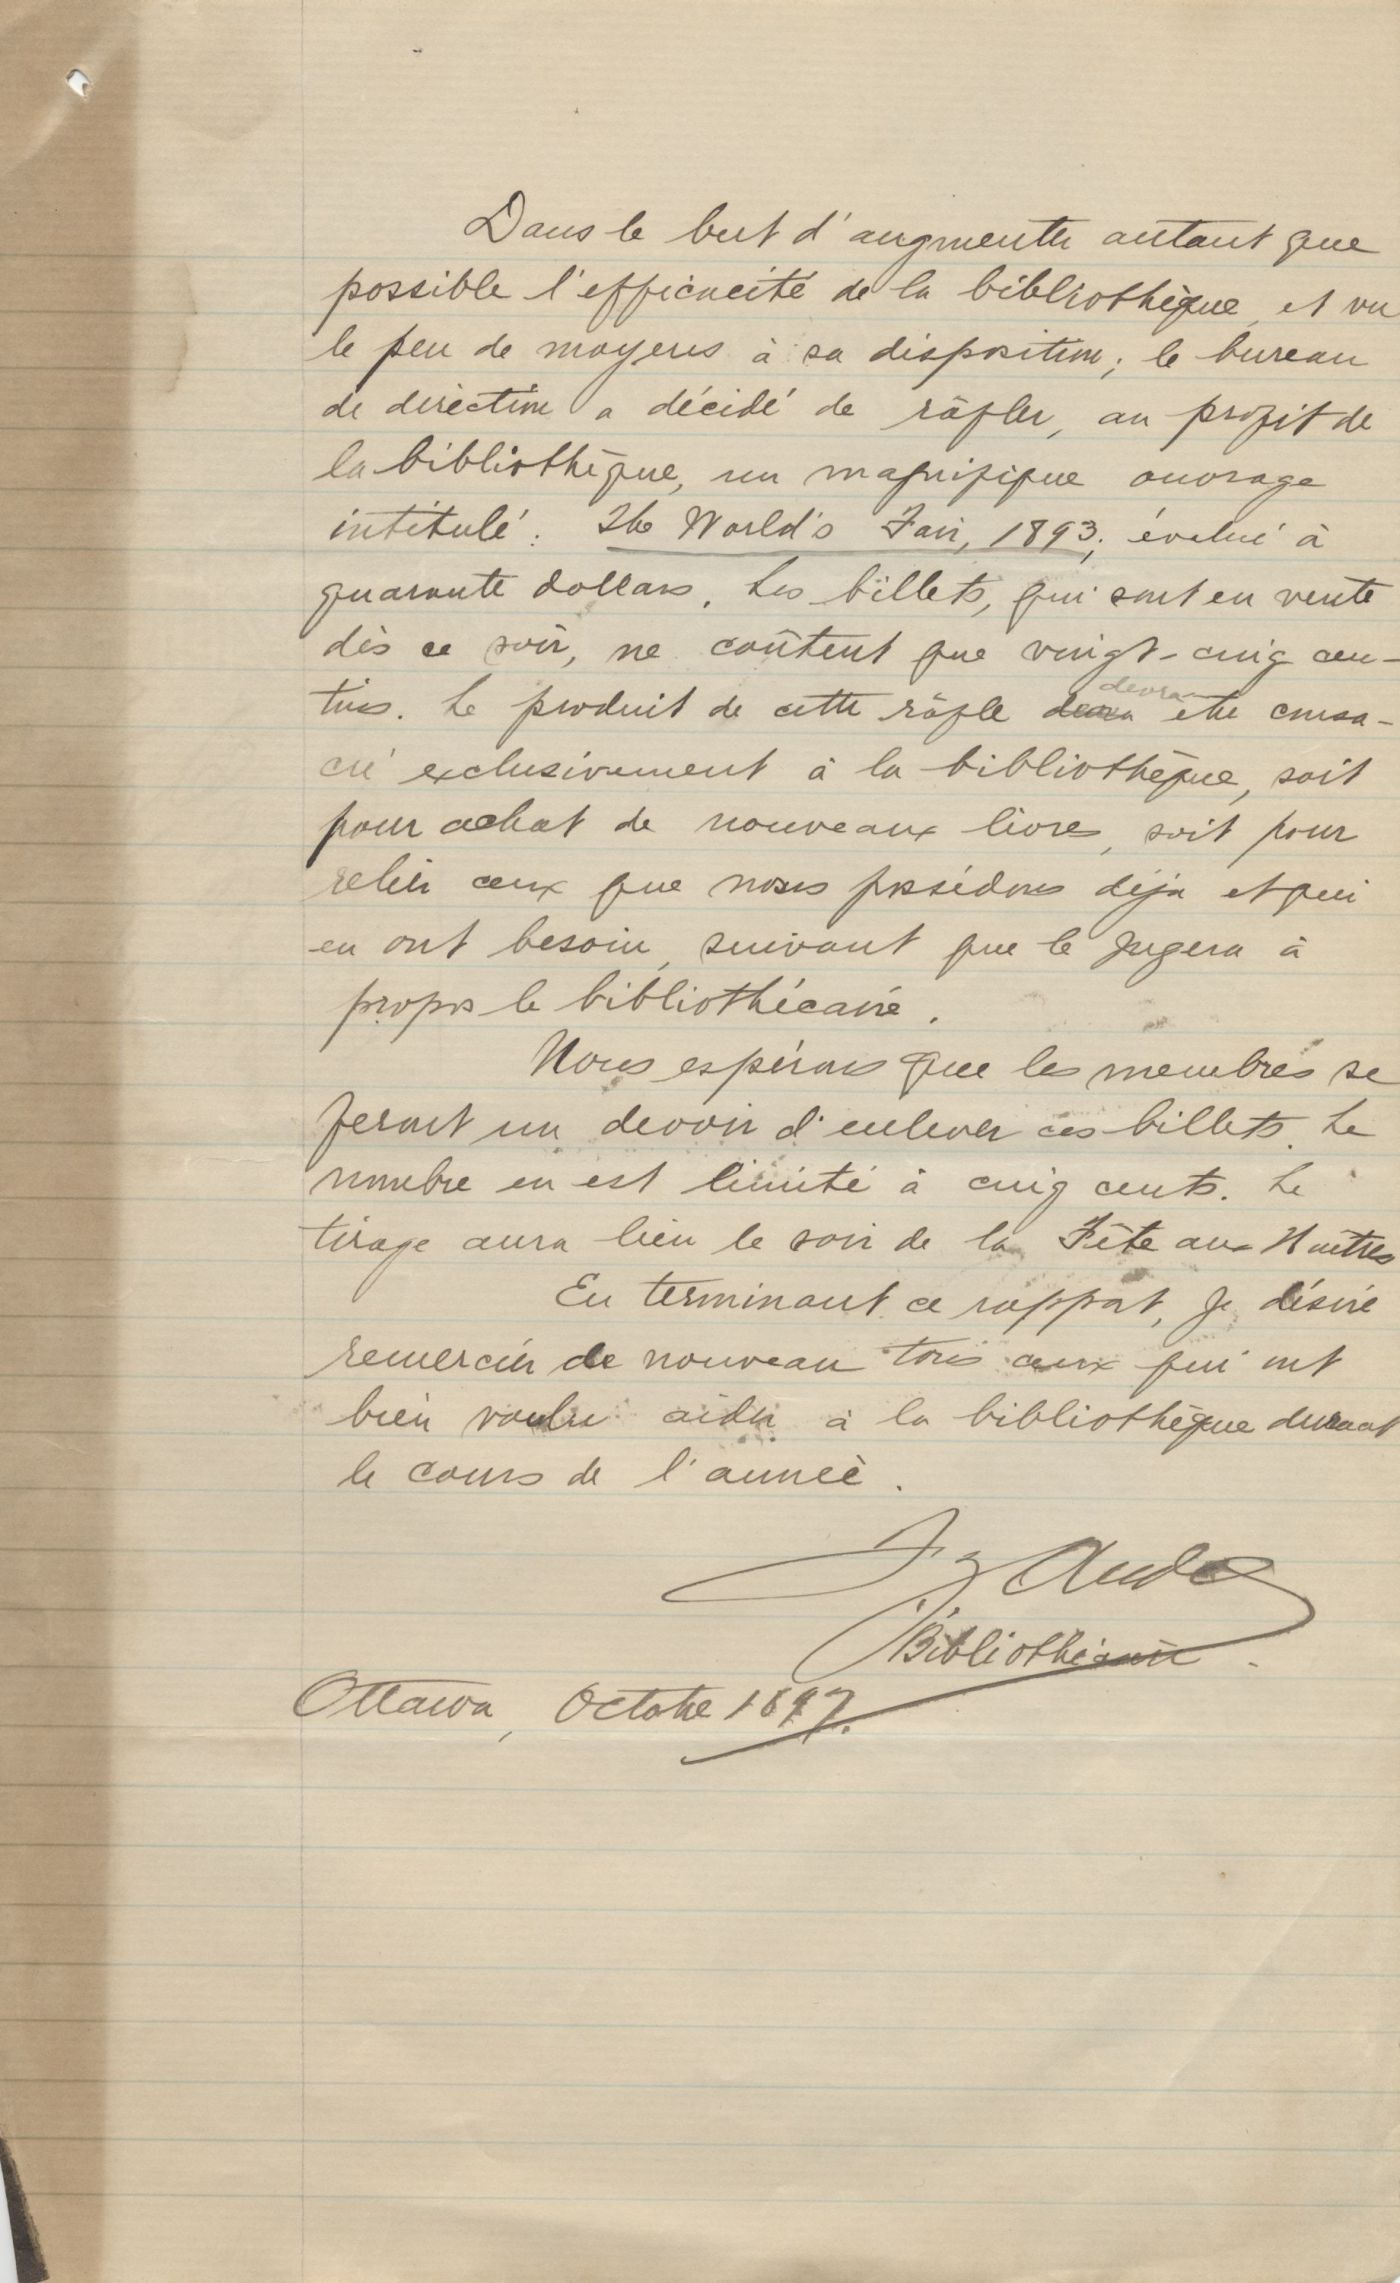 Dans le but d'augmenter autant que
possible l'efficacité de la bibliothèque, et vu
le peu de moyens à sa disposition; le bureau
de direction a décidé de râfler, au profit de
la bibliothèque, un magnifique ouvrage
intitulé: The World's Fair, 1893; évalué à
quarante dollars. Les billets, qui sont en vente
dès ce soir, ne coûtent que vingt-cinq cen-
tins. Le produit de cette râfle devra être consa-
cré exclusivement à la bibliothèque, soit
pour achat de nouveaux livres, soit pour
relier ceux que nous possédons déjà et qui
en ont besoin, suivant que le jugera à
propos le bibliothécaire.
Nous espérons que les membres se
feront un devoir d'enlever ces billets. Le
nombre en est limité à cinq cents. Le
tirage aura lieu le soir de la Fête aux Huîtres
En terminant ce rapport, je désire
remercier de nouveau tous ceux qui ont
bien voulu aider à la bibliothèque durant
le cours de l'année.
Audet
Bibliothécaire
Ottawa, Octobre 1897.